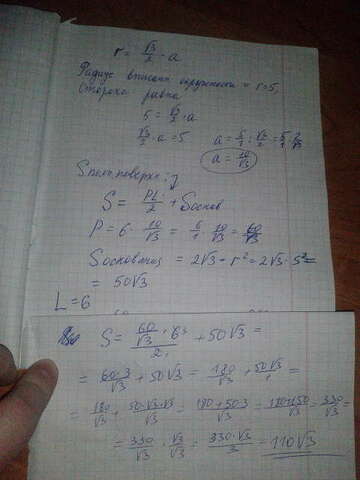 r = √3/2 · a
Радиус вписан окружности = r=5,
Сторона равна
5 = √3/2 · a
√3/2 · a = 5
a = 5/1 : √3/2 = 5/1 · 2/√3
a = 10/√3
S полн поверхн :
S = PL/2 + Sоснов
P = 6 · 10/√3 = 6/1 · 10/√3 = 60/√3
Sоснования = 2√3 · r² = 2√3 · 5² =
= 50√3
L = 6
S = 60/√3 · 6³/2 + 50√3 =
= 60·3/√3 + 50√3 = 180/√3 + 50√3/1 =
= 180/√3 + 50·√3·√3/√3 = 180+50·3/√3 = 180+150/√3 = 330/√3 =
= 330/√3 · √3/√3 = 330·√3/3 = 110√3